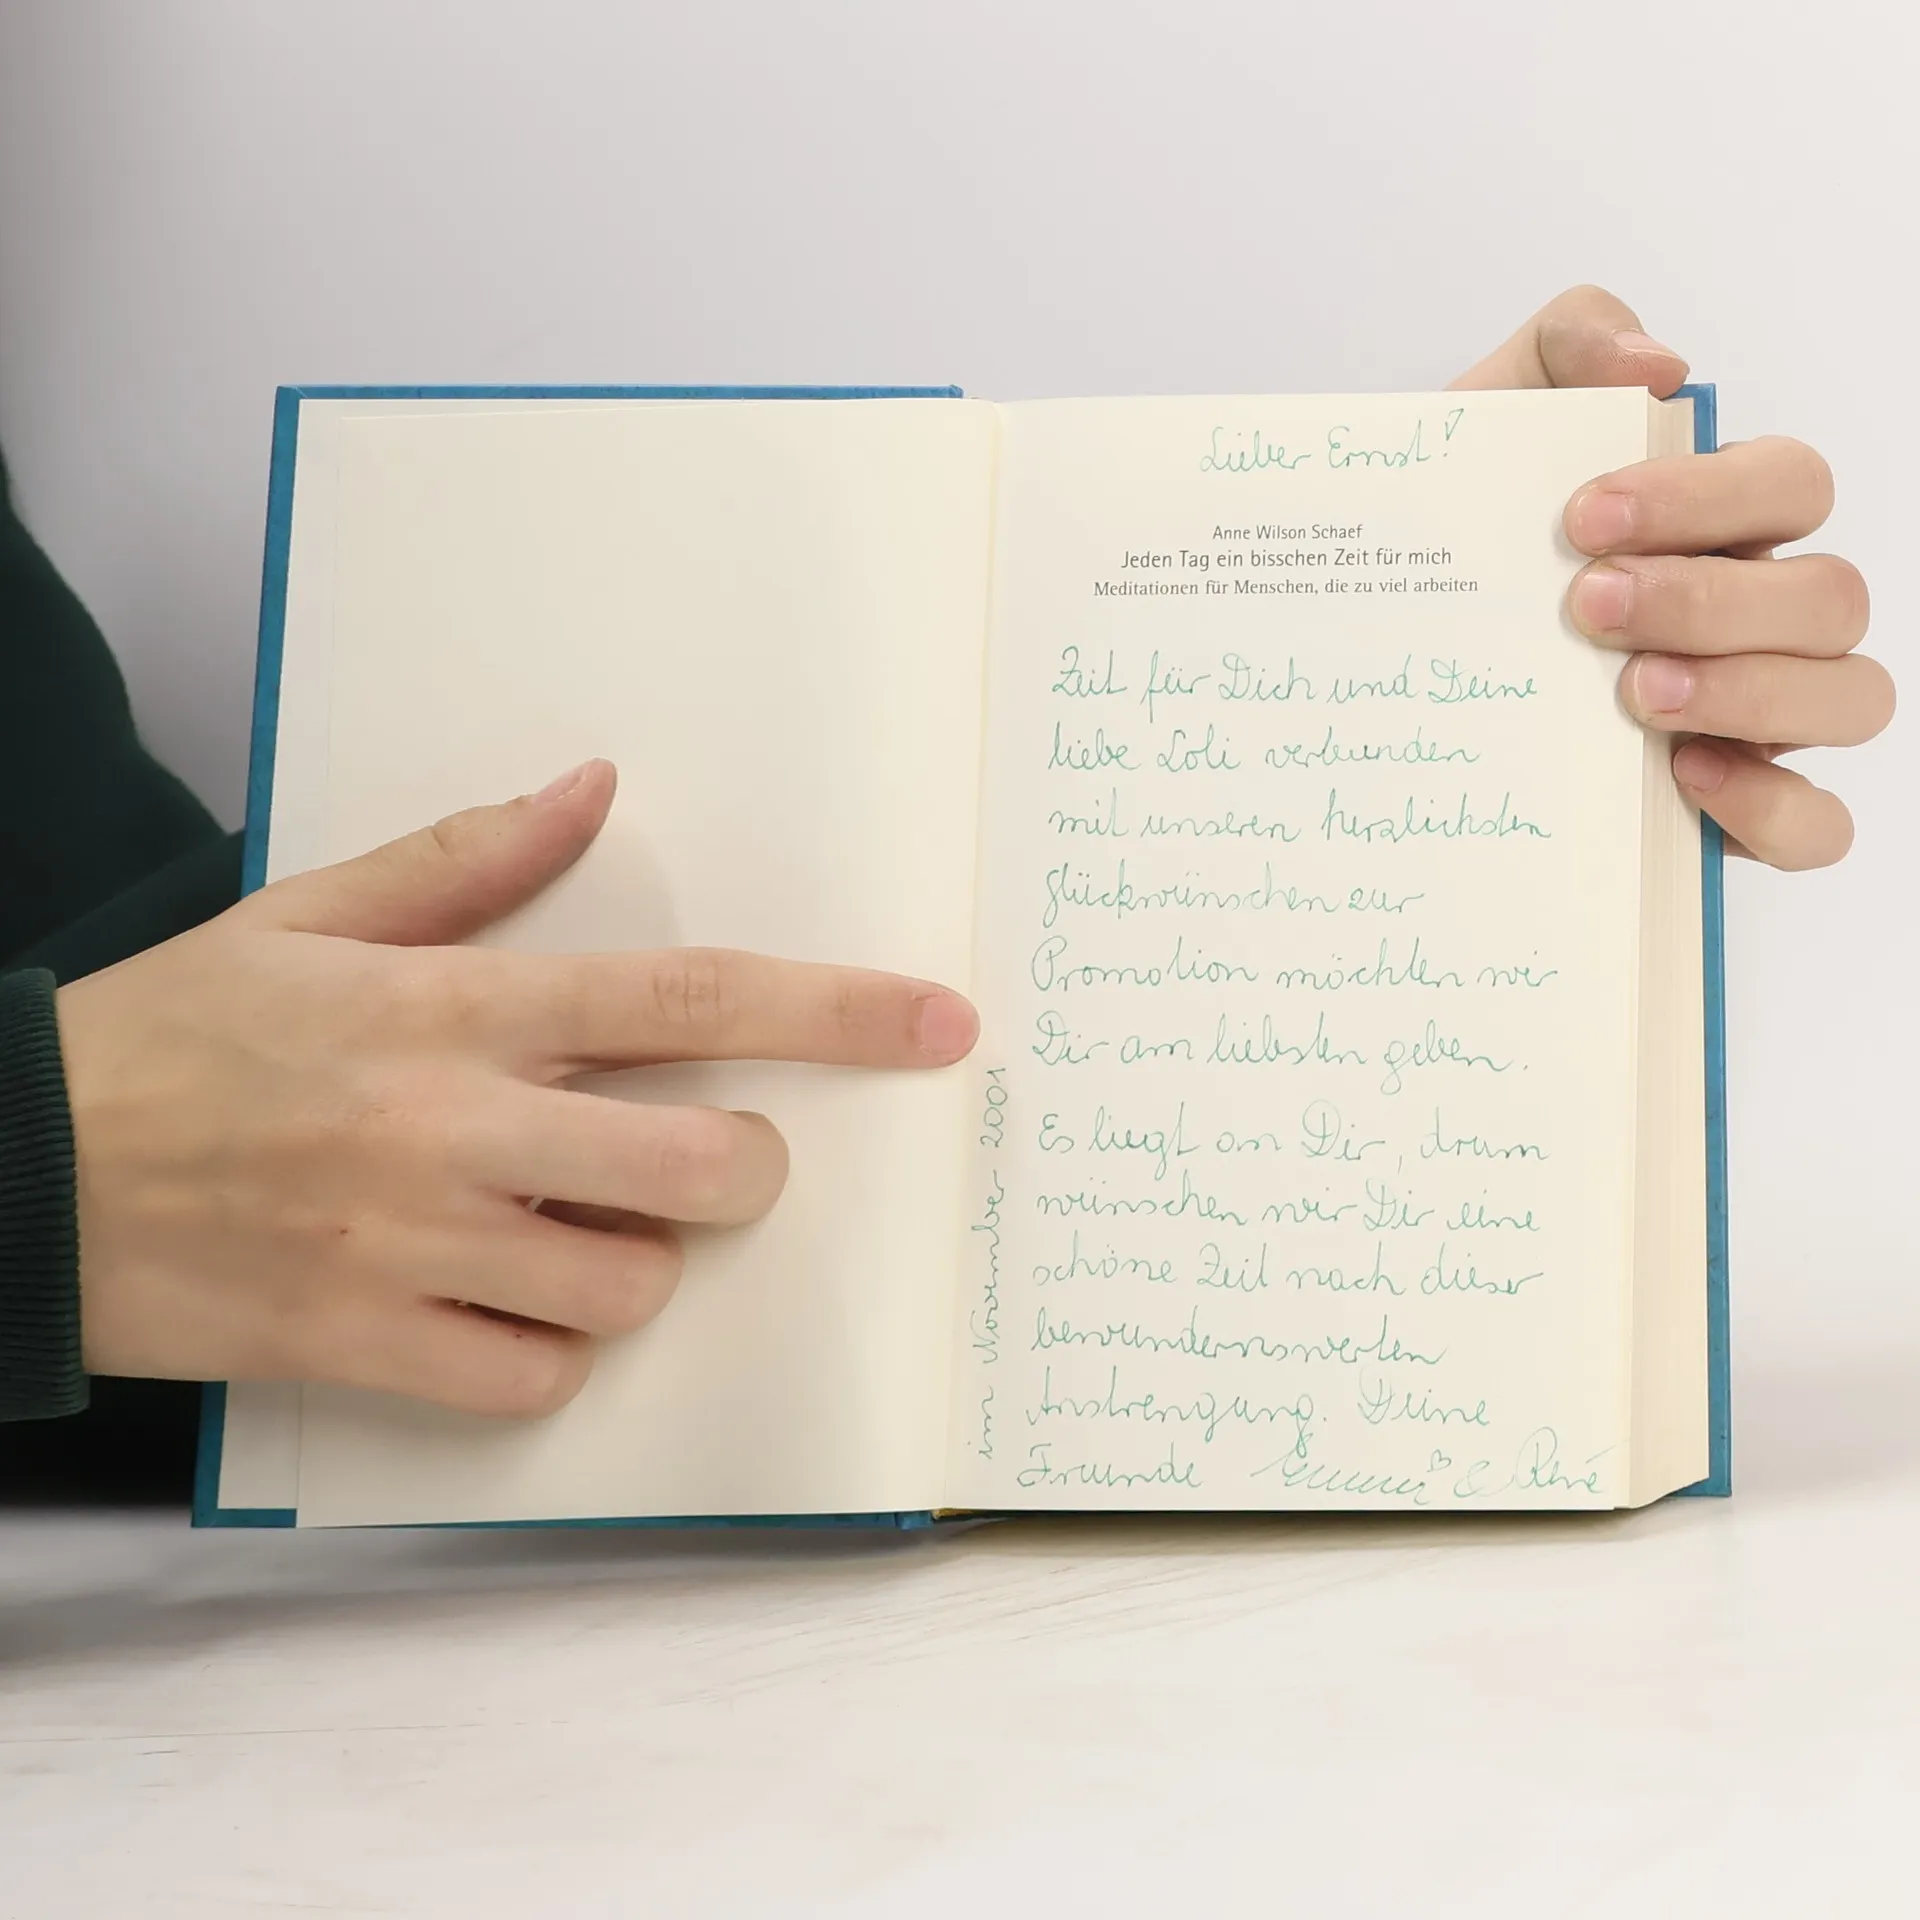 Lieber Ernst!
Anne Wilson Schaef
Jeden Tag ein bisschen Zeit für mich
Meditationen für Menschen, die zu viel arbeiten
Zeit für Dich und Deine
liebe Loli verbunden
mit unseren herzlichsten
Glückwünschen zur
Promotion möchten wir
Dir am liebsten geben.
Es liegt an Dir, drum
wünschen wir Dir eine
schöne Zeit nach dieser
bewundernswerten
Anstrengung. Deine
Freunde & René
im November 2001